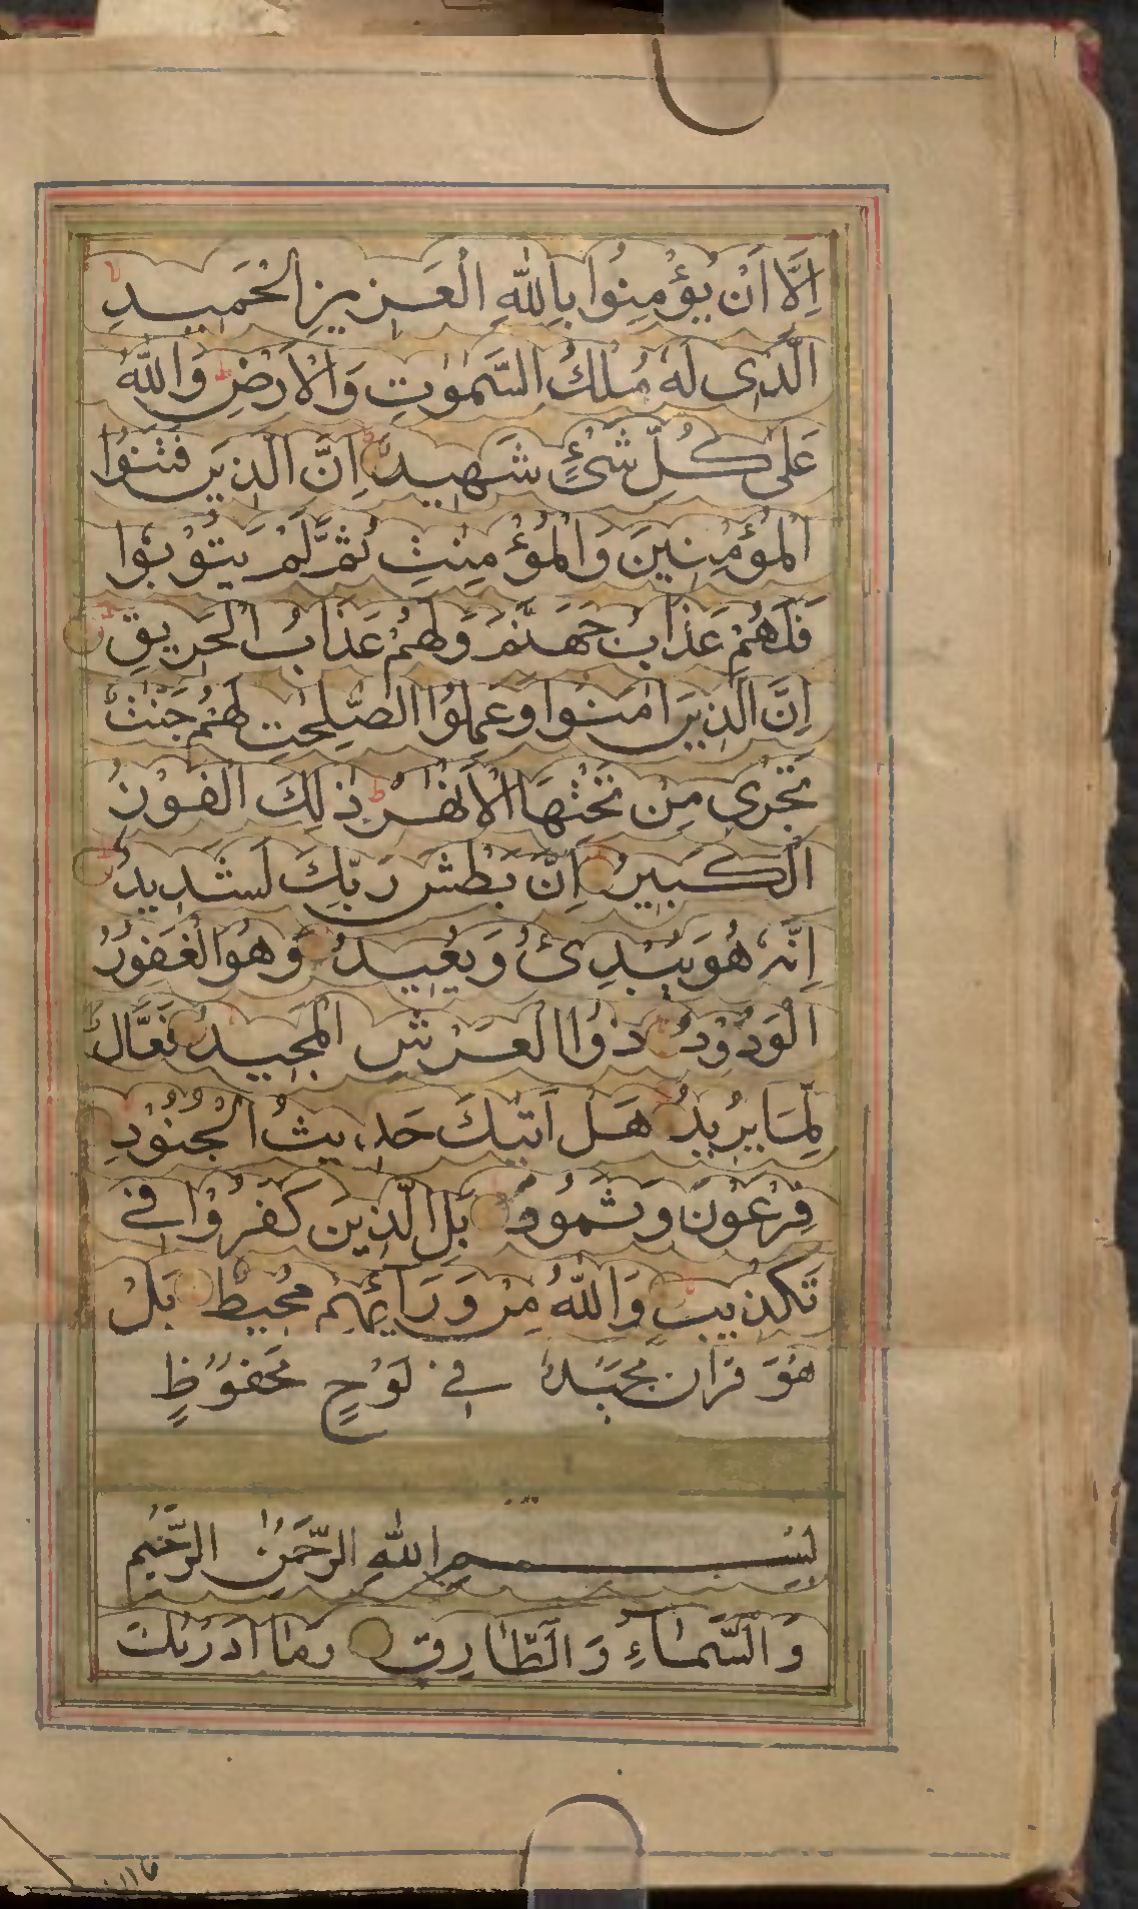 اِلَّا اَنْ يُؤْمِنُوا بِاللّٰهِ الْعَزِيزِ الْحَمِيدِ
الَّذِى لَهٗ مُلْكُ السَّمٰوٰتِ وَالْاَرْضِ ط وَاللّٰهُ
عَلٰى كُلِّ شَىْءٍ شَهِيدٌ اِنَّ الَّذِينَ فَتَنُوا
الْمُؤْمِنِينَ وَالْمُؤْمِنٰتِ ثُمَّ لَمْ يَتُوْبُوا
فَلَهُمْ عَذَابُ جَهَنَّمَ وَلَهُمْ عَذَابُ الْحَرِيقِ
اِنَّ الَّذِينَ اٰمَنُوا وَعَمِلُوا الصّٰلِحٰتِ لَهُمْ جَنّٰتٌ
تَجْرِى مِنْ تَحْتِهَا الْاَنْهٰرُ ط ذٰلِكَ الْفَوْزُ
الْكَبِيرُ اِنَّ بَطْشَ رَبِّكَ لَشَدِيدٌ
اِنَّهٗ هُوَ يُبْدِئُ وَيُعِيدُ وَهُوَ الْغَفُورُ
الْوَدُوْدُ ذُوا الْعَرْشِ الْمَجِيدُ فَعَّالٌ
لِمَا يُرِيدُ هَلْ اَتٰيكَ حَدِيثُ الْجُنُوْدِ
فِرْعَوْنَ وَثَمُوْدَ بَلِ الَّذِينَ كَفَرُوْا فِى
تَكْذِيبٍ وَاللّٰهُ مِنْ وَرَآئِهِمْ مُحِيطٌ بَلْ
هُوَ قُرْاٰنٌ مَجِيدٌ فِى لَوْحٍ مَحْفُوْظٍ
بِسْمِ اللّٰهِ الرَّحْمٰنِ الرَّحِيْمِ
وَالسَّمَاءِ وَالطَّارِقِ وَمَا اَدْرٰىكَ